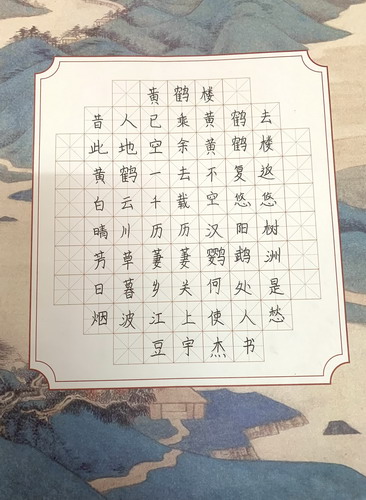 黄鹤楼
昔人已乘黄鹤去
此地空余黄鹤楼
黄鹤一去不复返
白云千载空悠悠
晴川历历汉阳树
芳草萋萋鹦鹉洲
日暮乡关何处是
烟波江上使人愁
豆宇杰书